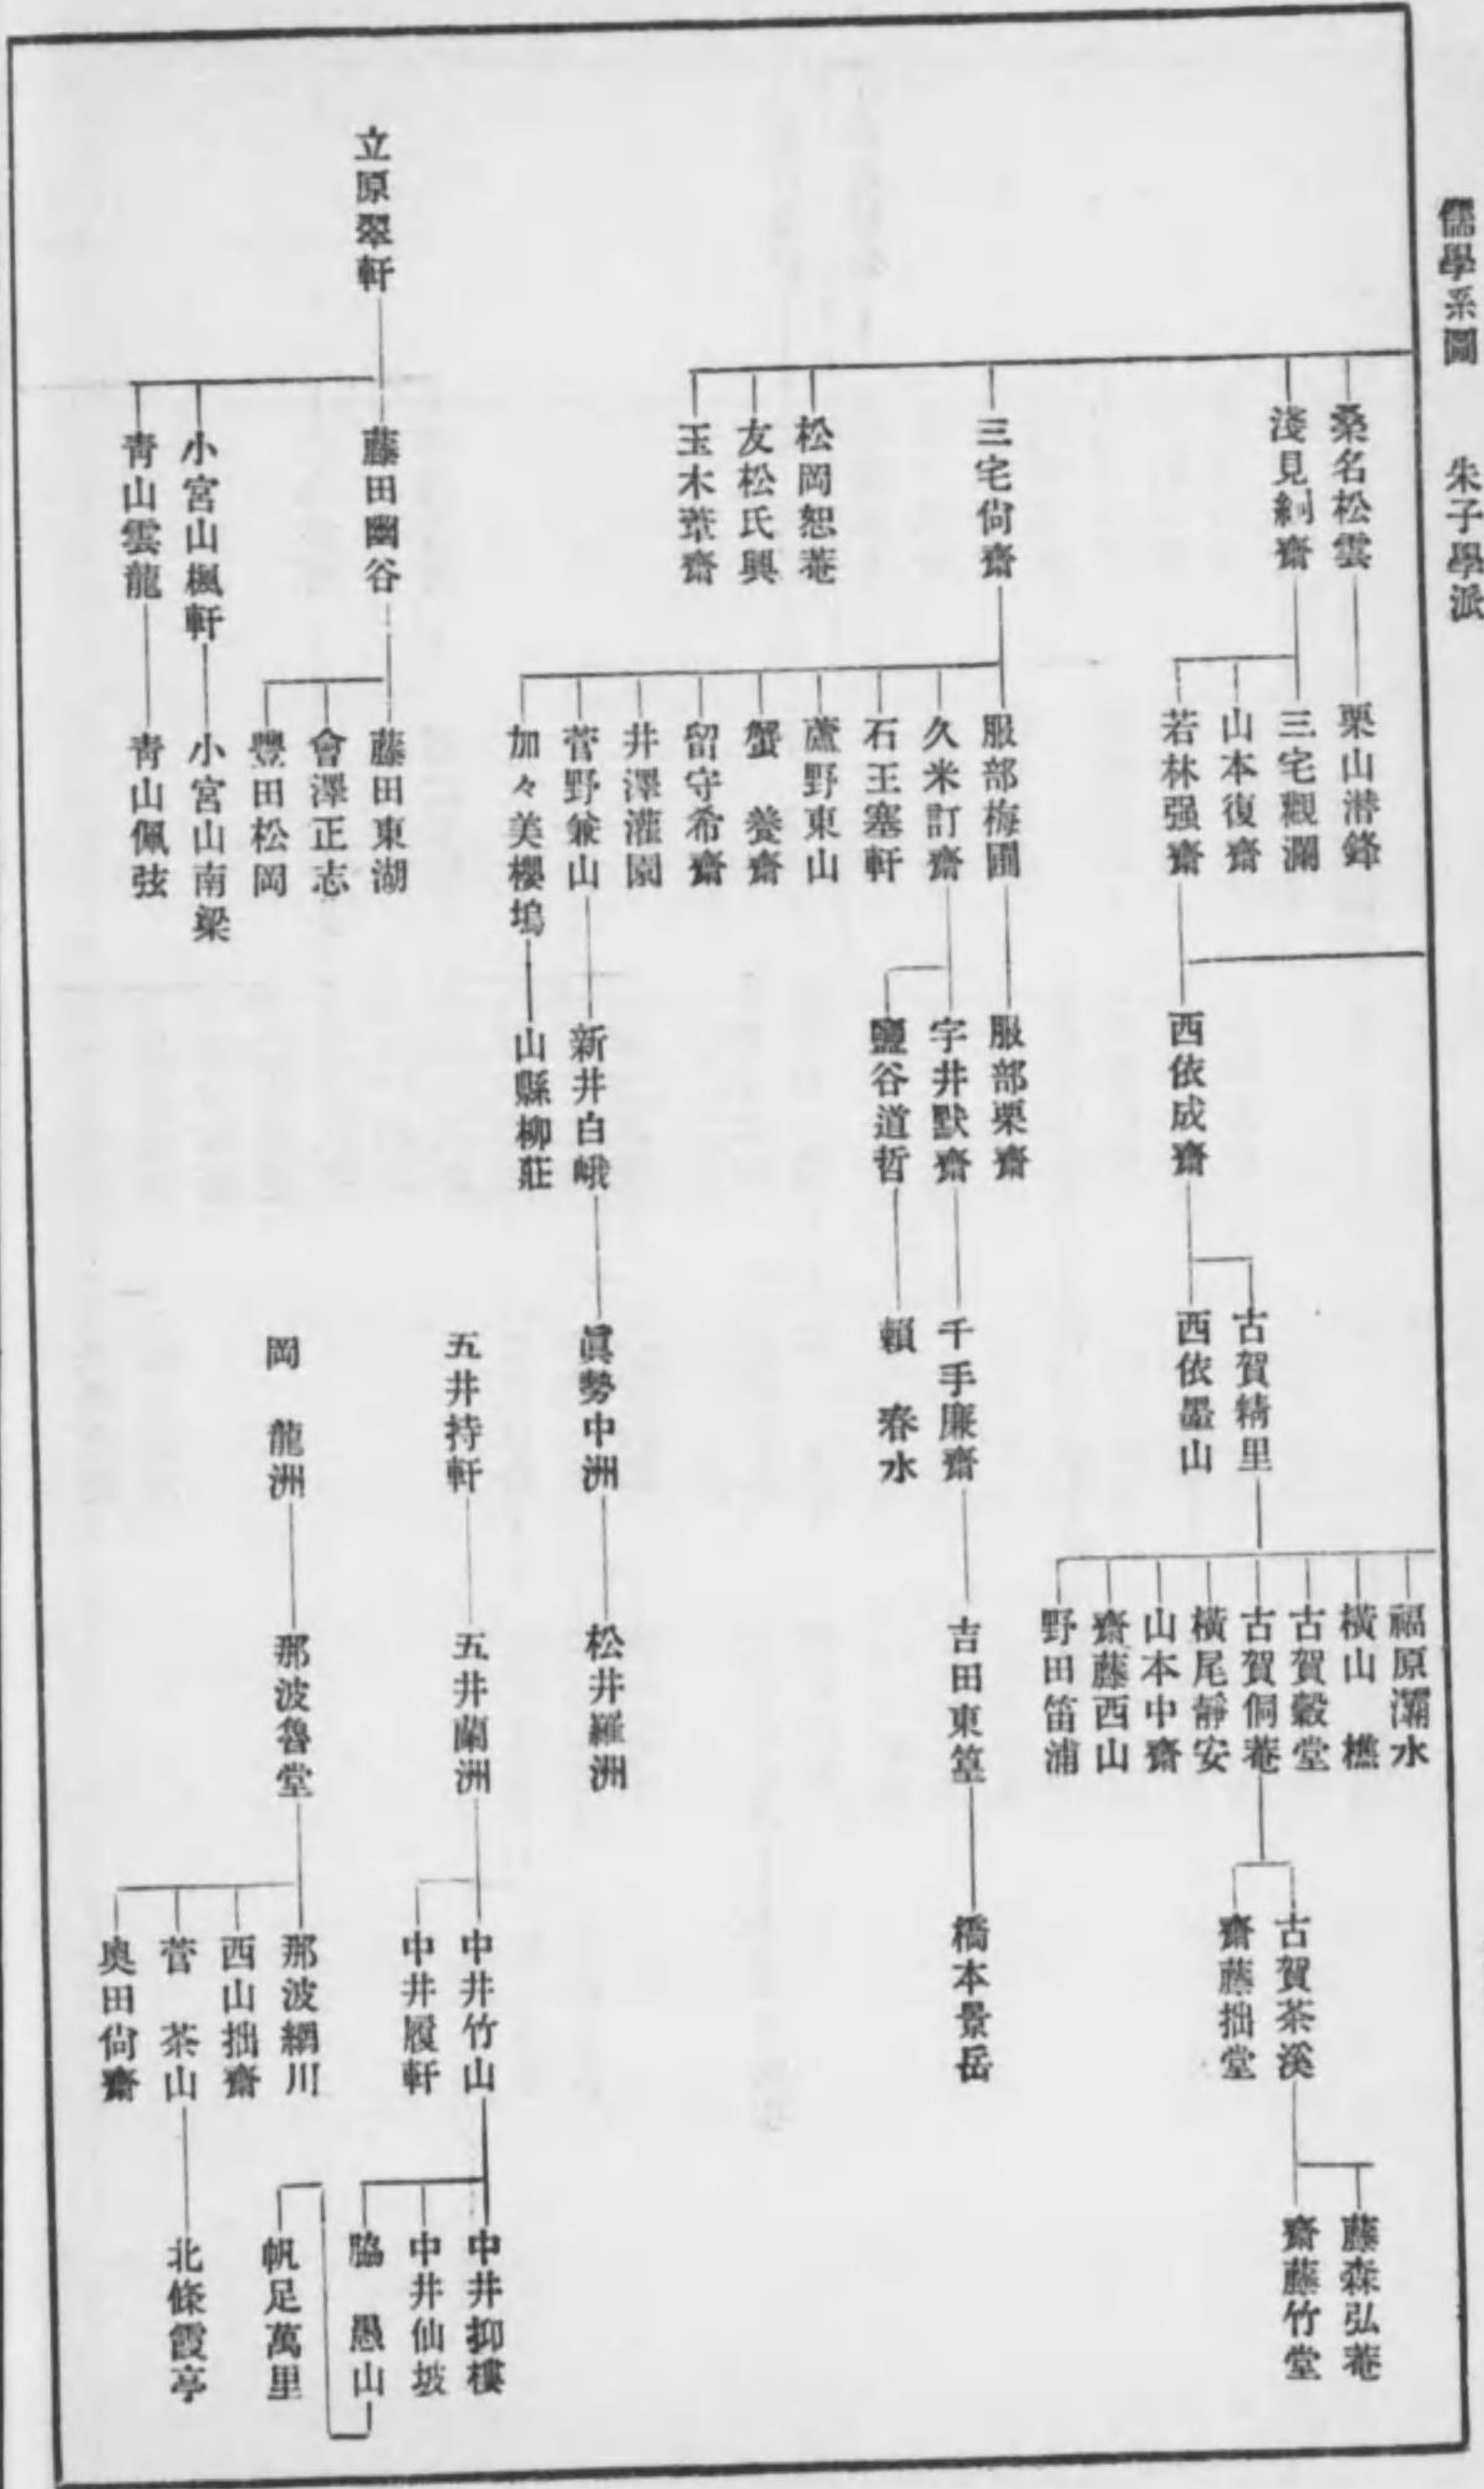 儒學系圖　朱子學派
桑名松雲
栗山潜鋒
淺見絅齋
三宅觀瀾
山本復齋
若林强齋
西依成齋
古賀精里
西依墨山
福原瀟水
横山　樵
古賀穀堂
古賀侗菴
横尾靜安
山本中齋
齋藤西山
野田笛浦
古賀茶溪
齋藤拙堂
藤森弘菴
齋藤竹堂
三宅尙齋
服部梅圃
久米訂齋
石王塞軒
蘆野東山
蟹　養齋
留守希齋
井澤灌園
菅野兼山
加々美櫻塢
服部栗齋
宇井默齋
鹽谷道哲
千手廉齋
賴　春水
吉田東篁
橋本景岳
新井白峨
眞勢中洲
松井羅洲
山縣柳莊
松岡恕菴
友松氏興
玉木葦齋
五井持軒
五井蘭洲
中井竹山
中井履軒
中井抑樓
中井仙坡
脇　愚山
帆足萬里
立原翠軒
藤田幽谷
小宮山楓軒
青山雲龍
藤田東湖
會澤正志
豐田松岡
小宮山南梁
青山佩弦
岡　龍洲
那波魯堂
那波網川
西山拙齋
菅　茶山
奥田尙齋
北條霞亭